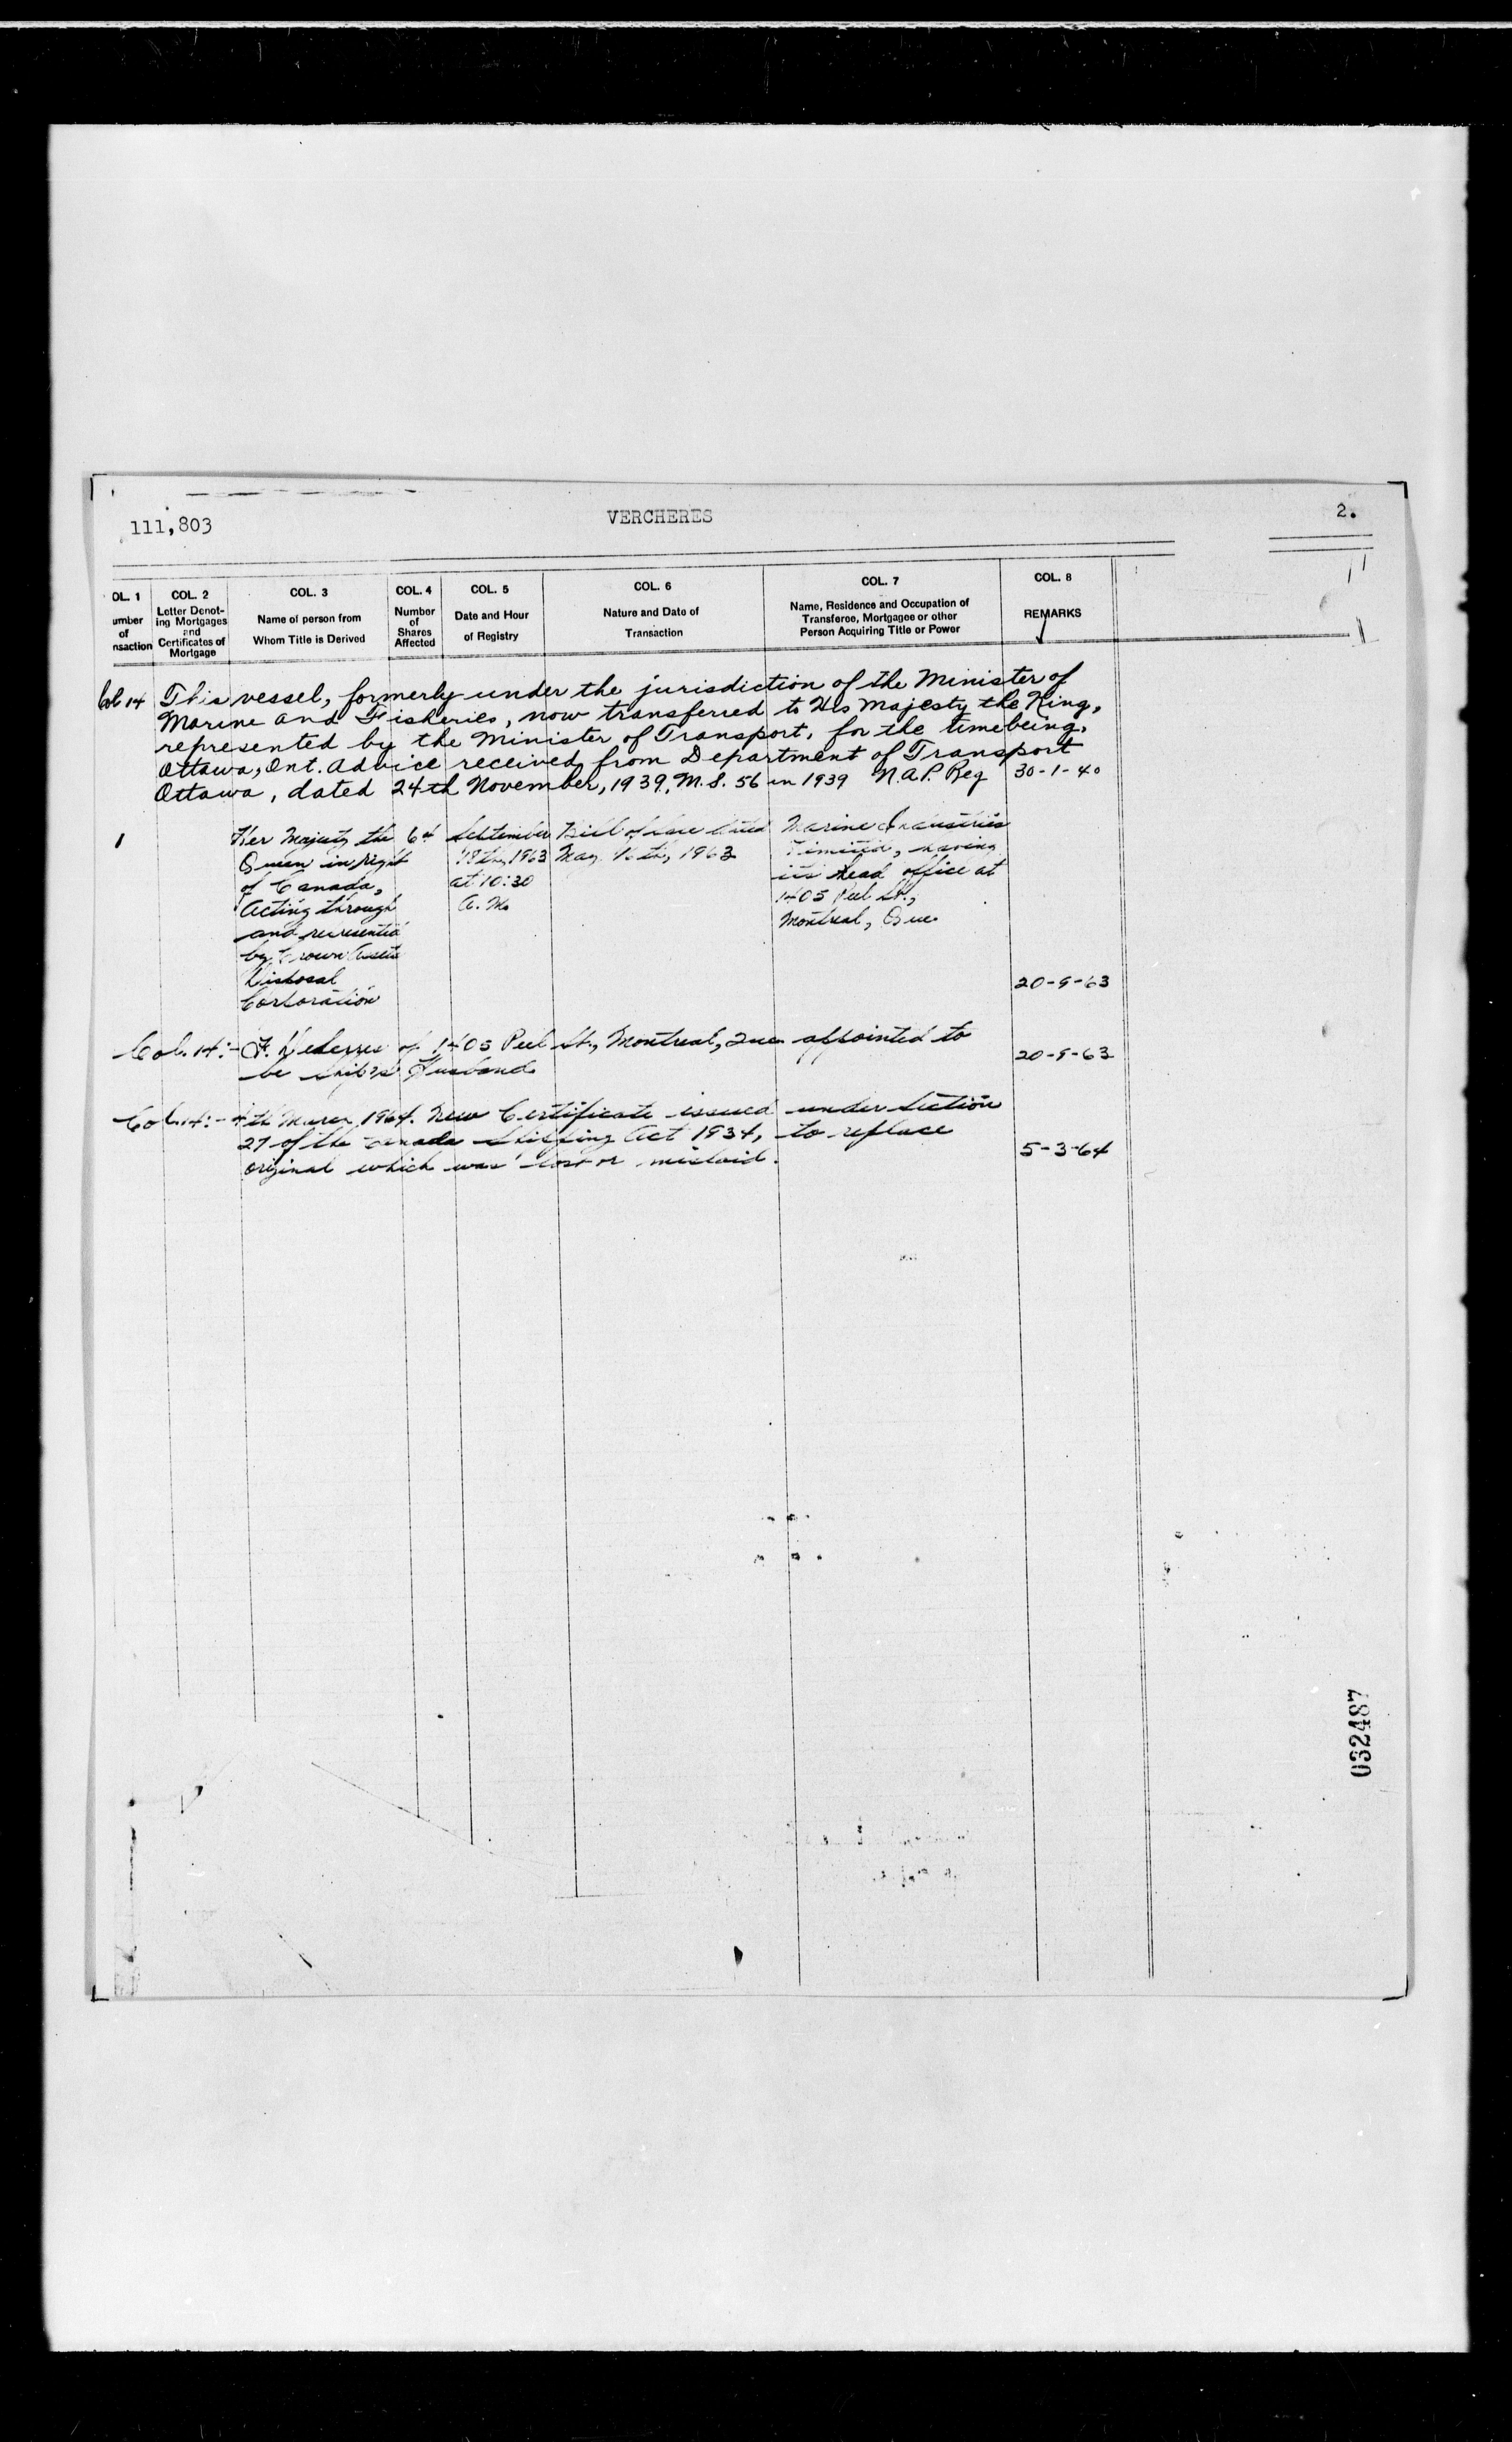 111,803
VERCHERES
2.
OL. 1
umber
of
nsaction
COL. 2
Letter Denot-
ing Mortgages
and
Certificates of
Mortgage
COL. 3
Name of person from
Whom Title is Derived
COL. 4
Number
of
Shares
Affected
COL. 5
Date and Hour
of Registry
COL. 6
Nature and Date of
Transaction
COL. 7
Name, Residence and Occupation of
Transferee, Mortgagee or other
Person Acquiring Title or Power
COL. 8
REMARKS
Col 14 This vessel, formerly under the jurisdiction of the Minister of
Marine and Fisheries, now transferred to His Majesty the King,
represented by the Minister of Transport, for the time being,
Ottawa, Ont. Advice received from Department of Transport
Ottawa, dated 24th November, 1939, M.S. 56 in 1939 N.A.P. Reg 30-1-40
1
Her Majesty the
Queen in right
of Canada,
Acting through
and represented
by Crown Assets
Disposal
Corporation
64
September
18th, 1963
at 10:30
A.M.
Bill of Sale dated
May 16th, 1963
Marine Industries
Limited, having
its head office at
1405 Peel St.,
Montreal, Que.
20-9-63
Col. 14:- F. of 1405 Peel St., Montreal, Que. appointed to
be ship's Husband.
20-9-63
Col. 14:- 4th March 1964. New Certificate issued under Section
27 of the Canada Shipping Act 1934, to replace
original which was lost or mislaid.
5-3-64
032487